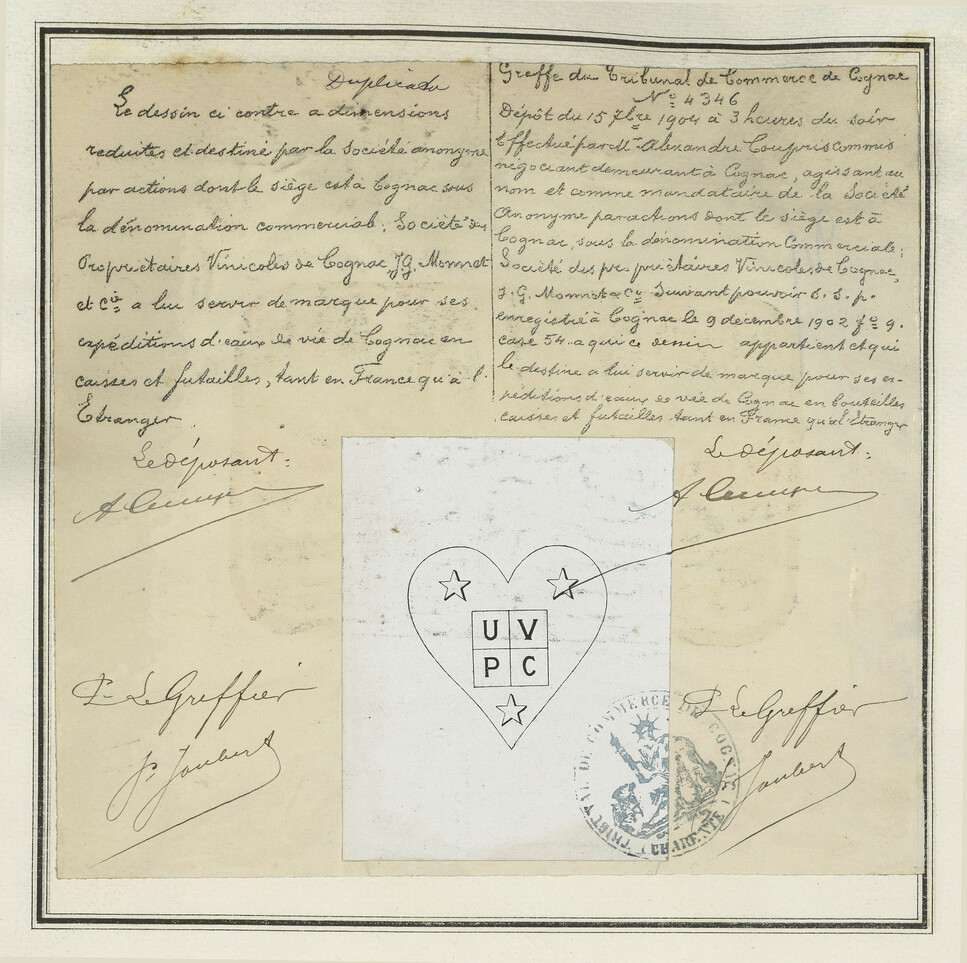 Duplicada
Le dessin ci contre a dimensions
reduites et destiné par la Société anonyme
par actions dont le siège est à Cognac sous
la dénomination commercial; Société des
Propriètaires Vinicoles de Cognac J.G. Monnet
et Cie a lui servir de marque pour ses
expéditions d'eaux de vie de Cognac en
caisses et futailles, tant en France qu'à l'
Etranger
Le déposant:
P. Le Greffier
Jaubert
Greffe du Tribunal de Commerce de Cognac
No 4346
Dépôt du 15 7bre 1904 à 3 heures du soir
Effectué par M. Alexandre Coupris commis
négociant demeurant à Cognac, agissant au
nom et comme mandataire de la Société
Anonyme par actions dont le siège est à
Cognac, sous la dénomination Commerciale;
Société des propriètaires Vinicoles de Cognac,
J.G. Monnet & Co Suivant pouvoir s.s.p.
enregistré à Cognac le 9 décembre 1902 fo 9.
case 54. a qui ce dessin appartient et qui
le destine a lui servir de marque pour ses ex-
péditions d'eaux de vie de Cognac en bouteilles
caisses et futailles tant en France qu'à l'Etranger
Le déposant:
P. Le Greffier
Jaubert
U V
P C
TRIBUNAL DE COMMERCE DE COGNAC
(CHARENTE)